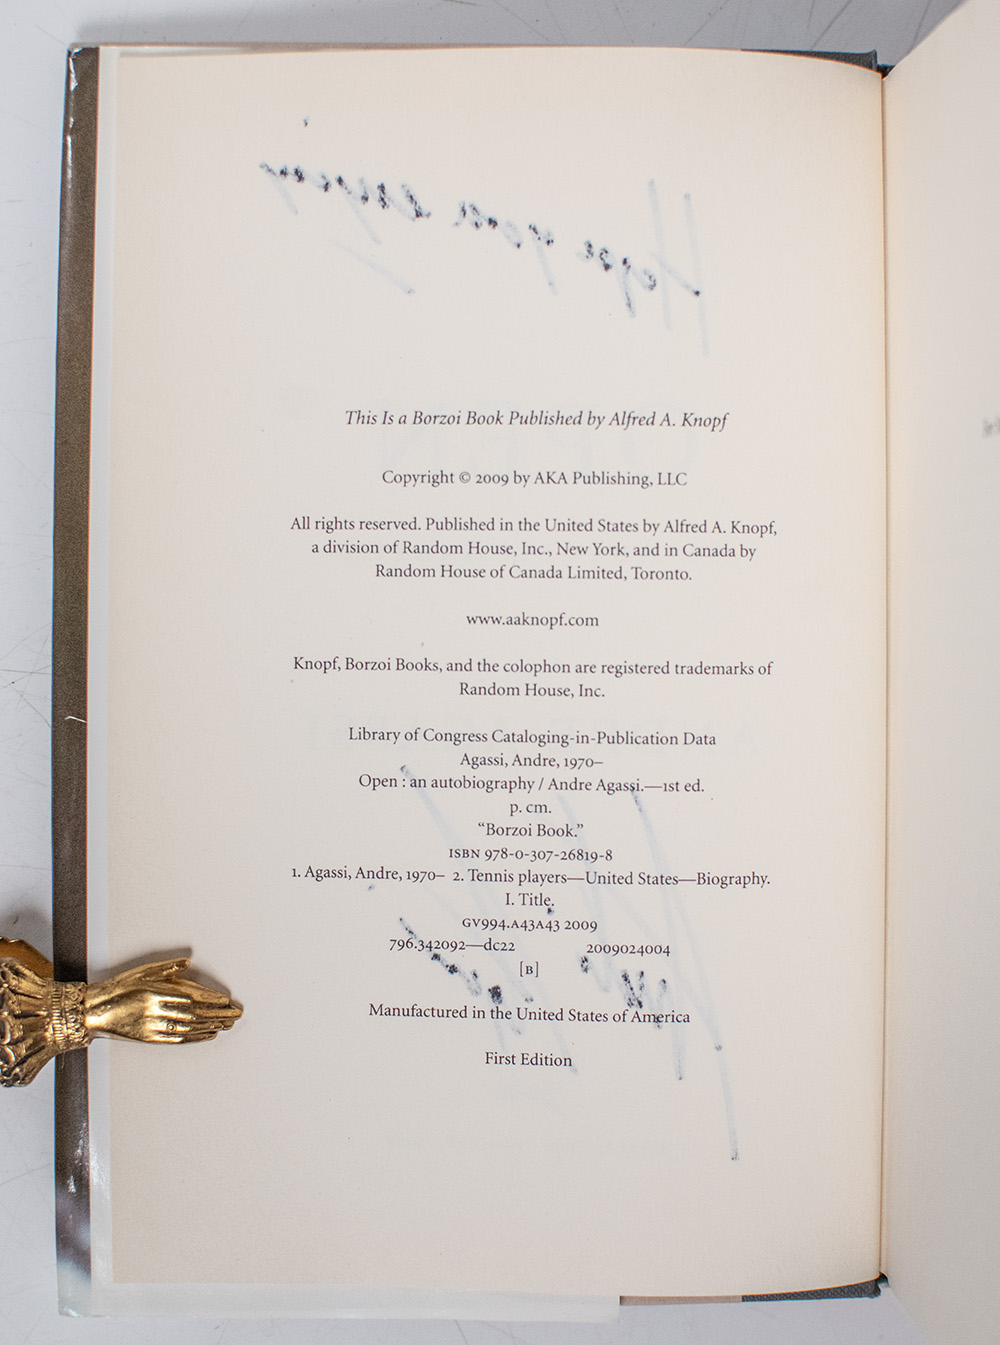 This Is a Borzoi Book Published by Alfred A. Knopf
Copyright © 2009 by AKA Publishing, LLC
All rights reserved. Published in the United States by Alfred A. Knopf,
a division of Random House, Inc., New York, and in Canada by
Random House of Canada Limited, Toronto.
www.aaknopf.com
Knopf, Borzoi Books, and the colophon are registered trademarks of
Random House, Inc.
Library of Congress Cataloging-in-Publication Data
Agassi, Andre, 1970–
Open : an autobiography / Andre Agassi.—1st ed.
p. cm.
“Borzoi Book.”
ISBN 978-0-307-26819-8
1. Agassi, Andre, 1970– 2. Tennis players—United States—Biography.
I. Title.
GV994.A43A43 2009
796.342092—dc22 2009024004
[B]
Manufactured in the United States of America
First Edition